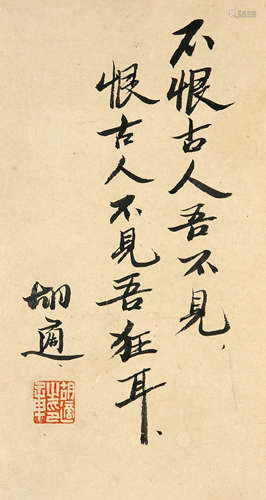 不恨古人吾不見,
恨古人不見吾狂耳、
胡適
胡適之印